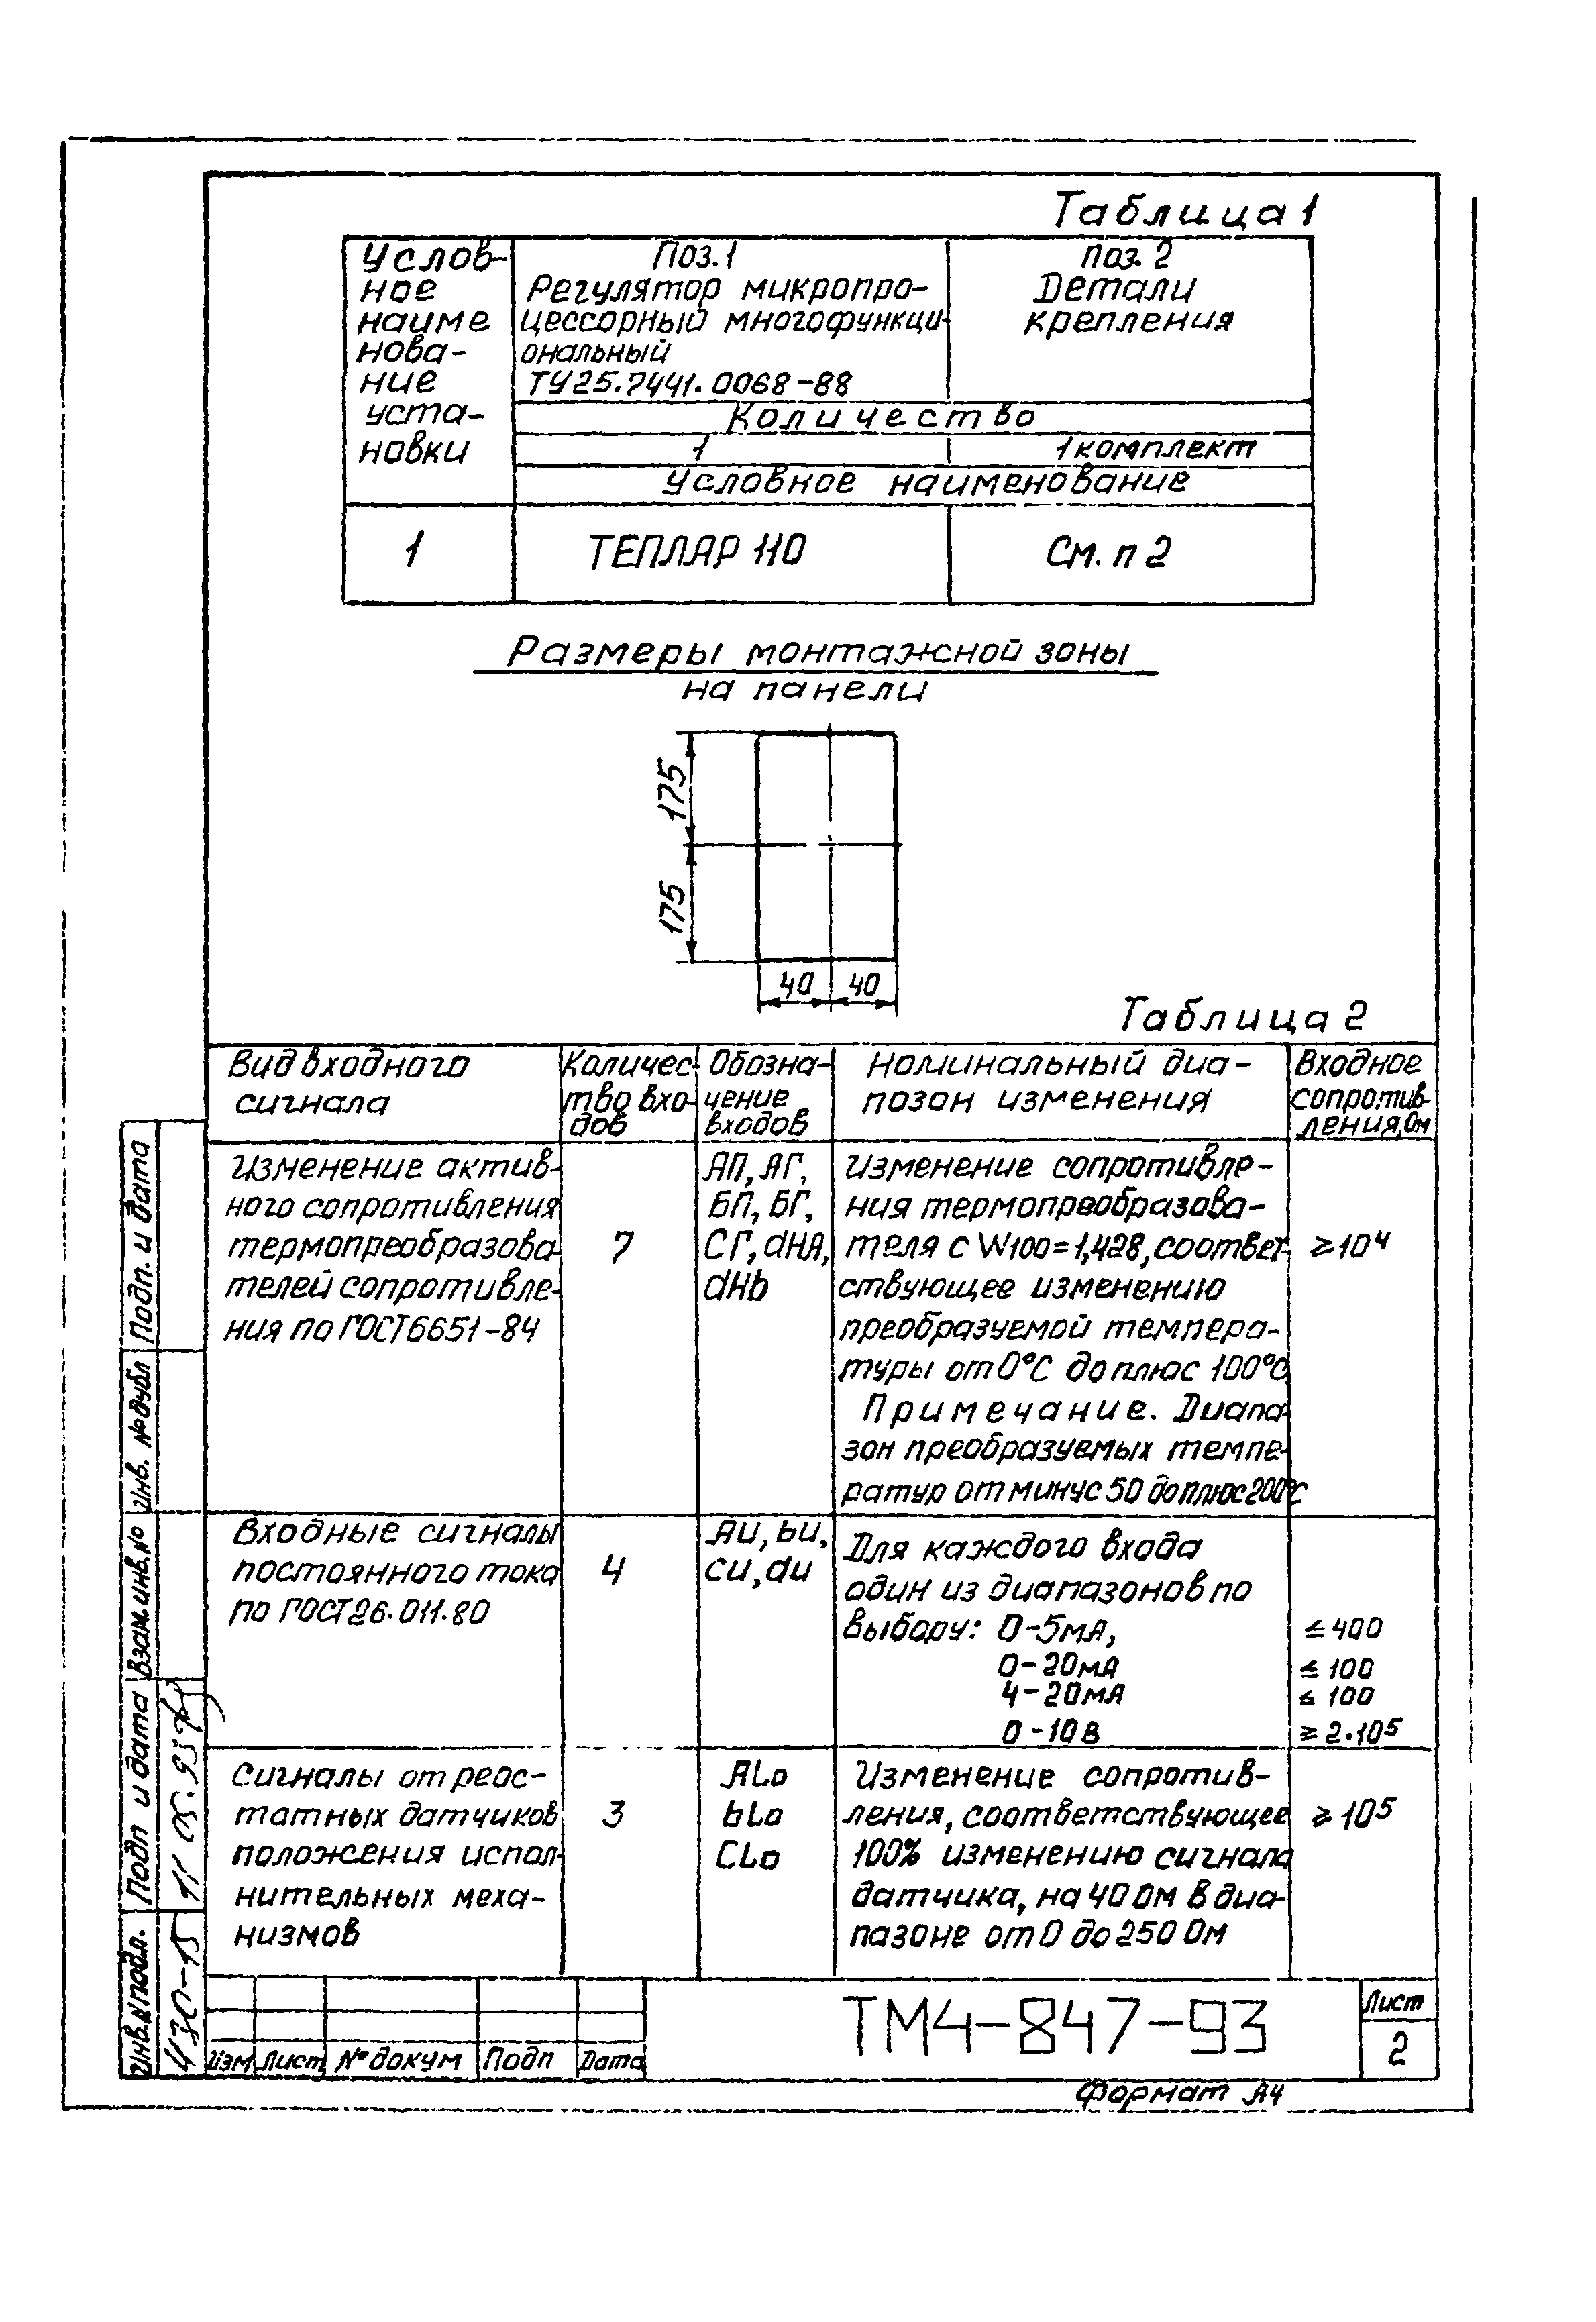 Таблица 1
Услов-
ное
наиме
нова-
ние
уста-
новки
Поз.1
Регулятор микропро-
цессорный многофункци-
ональный
ТУ25.7441.0068-88
поз. 2
Детали
крепления
Количество
1
1 комплект
Условное наименование
1
ТЕПЛАР 110
См. п 2
Размеры монтажной зоны
на панели
175
175
40
40
Таблица 2
Вид входного
сигнала
Количес-
тво вхо-
дов
Обозна-
чение
входов
Номинальный диа-
позон изменения
Входное
сопротив-
ления, Ом
Изменение актив-
ного сопротивления
термопреобразова-
телей сопротивле-
ния по ГОСТ6651-84
7
АП, АГ,
БП, БГ,
СГ, dНА,
dНb
Изменение сопротивле-
ния термопреобразова-
теля с W100=1,428, соответ-
ствующее изменению
преобразуемой темпера-
туры от 0°С до плюс 100°С
Примечание. Диапа-
зон преобразуемых темпе-
ратур от минус 50 до плюс 200°С
≥10⁴
Входные сигналы
постоянного тока
по ГОСТ26.011.80
4
Au, bu,
cu, du
Для каждого входа
один из диапазонов по
выбору: 0-5мА,
0-20мА
4-20мА
0-10В
≤400
≤100
≤100
≥2·10⁵
Сигналы от реос-
татных датчиков
положения испол-
нительных меха-
низмов
3
ALo
bLo
CLo
Изменение сопротив-
ления, соответствующее
100% изменению сигнала
датчика, на 40 Ом в диа-
пазоне от 0 до 250 Ом
≥10⁵
Подп. и дата
Инв. № дубл
Взам. инв. №
Подп и дата
11 05.93г
Инв. № подл.
430-15
Изм
Лист
№ докум
Подп
Дата
ТМ4-847-93
Лист
2
Формат А4